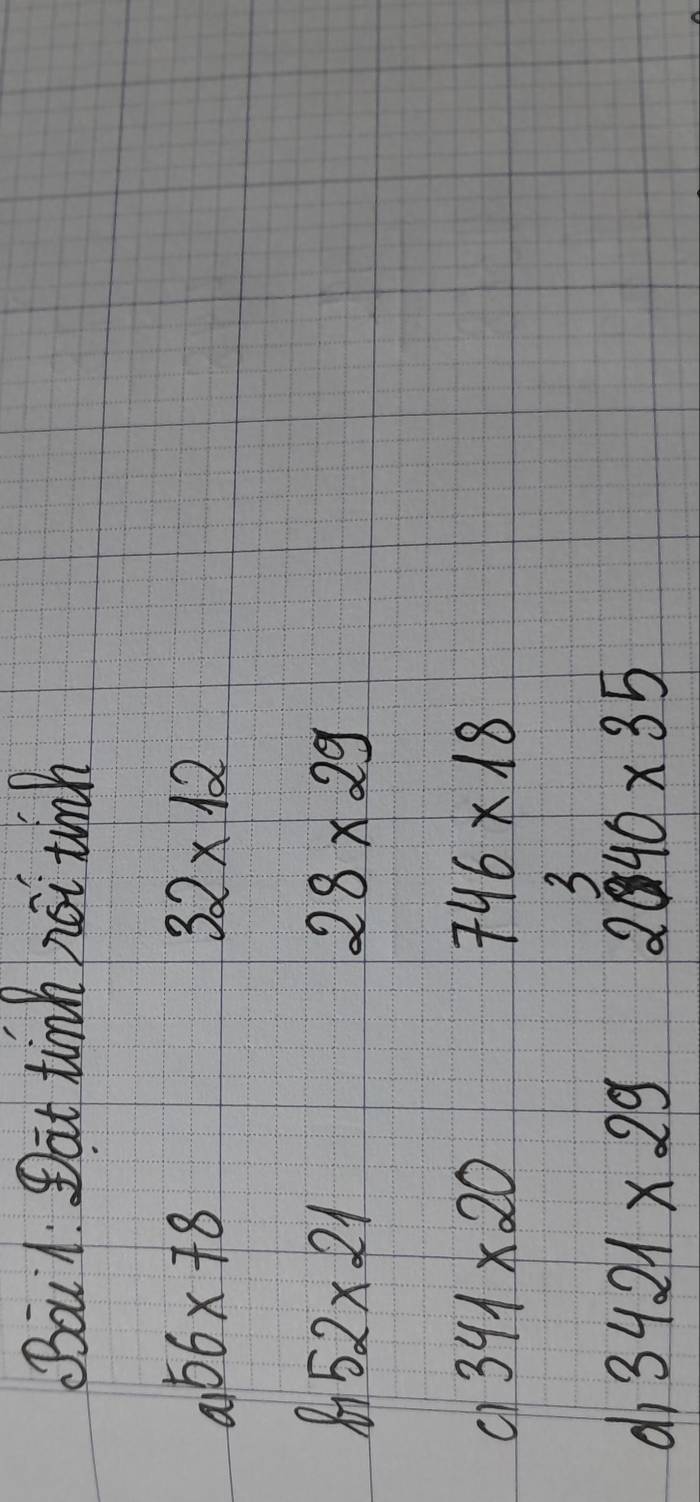 Bài 1: Đặt tính rồi tính
a, 56 x 78 32 x 12
b, 52 x 21 28 x 29
c, 341 x 20 746 x 18
3
d, 3421 x 29 2340 x 35